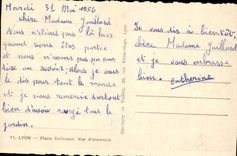 Mardi 31 Mai 1956
chère Madame Jaillard
Nous n'étions pas là
quand vous êtes partie
et nous n'avons pas pu vous
dire au revoir. Alors je vous
le dis pour tout le monde
et je vous remercie surtout
bien d'avoir rangé tout le
jardin.
Je vous dis à bientôt,
chère Madame Jaillard
et je vous embrasse
bien.
Catherine
11. LYON - Place Bellecour Vue d'ensemble